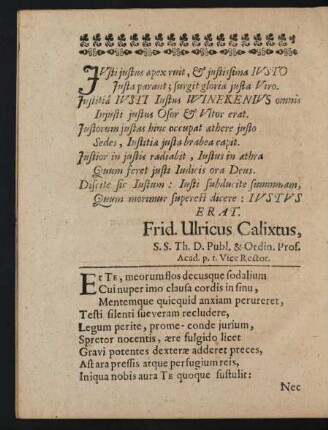 JUsti justus apex ruit, & justissima IVSTO
Justa parant; surgit gloria justa Viro.
Justitiâ IVSTI Iustus WINEKENIVS omnis
Injusti justus Osor & Ultor erat.
Justorum justas hinc occupat æthere justo
Sedes, Iustitiæ justa brabea capit.
Justior in justis radiabit, Iustus in æthra
Quum feret justa Iudicis ora Deus.
Discite sic Iustum: Iusti subducite summam,
Quum morimur superesti dicere: IVSTVS
ERAT.
Frid. Ulricus Calixtus,
S. S. Th. D. Publ. & Ordin. Prof.
Acad. p. t. Vice Rector.
ET TE, meorum flos decusque sodalium
Cui nuper imo clausa cordis in sinu,
Mentemque quicquid anxiam perureret,
Testi silenti sueveram recludere,
Legum perite, prome-conde jurium,
Spretor nocentis, ære fulgido licet
Gravi potentes dexteræ adderet preces,
Ast ara pressis arque perfugium reis,
Iniqua nobis aura TE quoque sustulit:
Nec